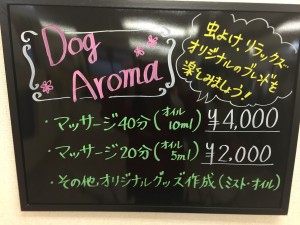 Dog
Aroma
虫よけ、リラックス
オリジナルのブレンドを
楽しみましょう!
・マッサージ40分(オイル10ml) ¥4,000
・マッサージ20分(オイル5ml) ¥2,000
・その他、オリジナルグッズ作成(ミスト・オイル)